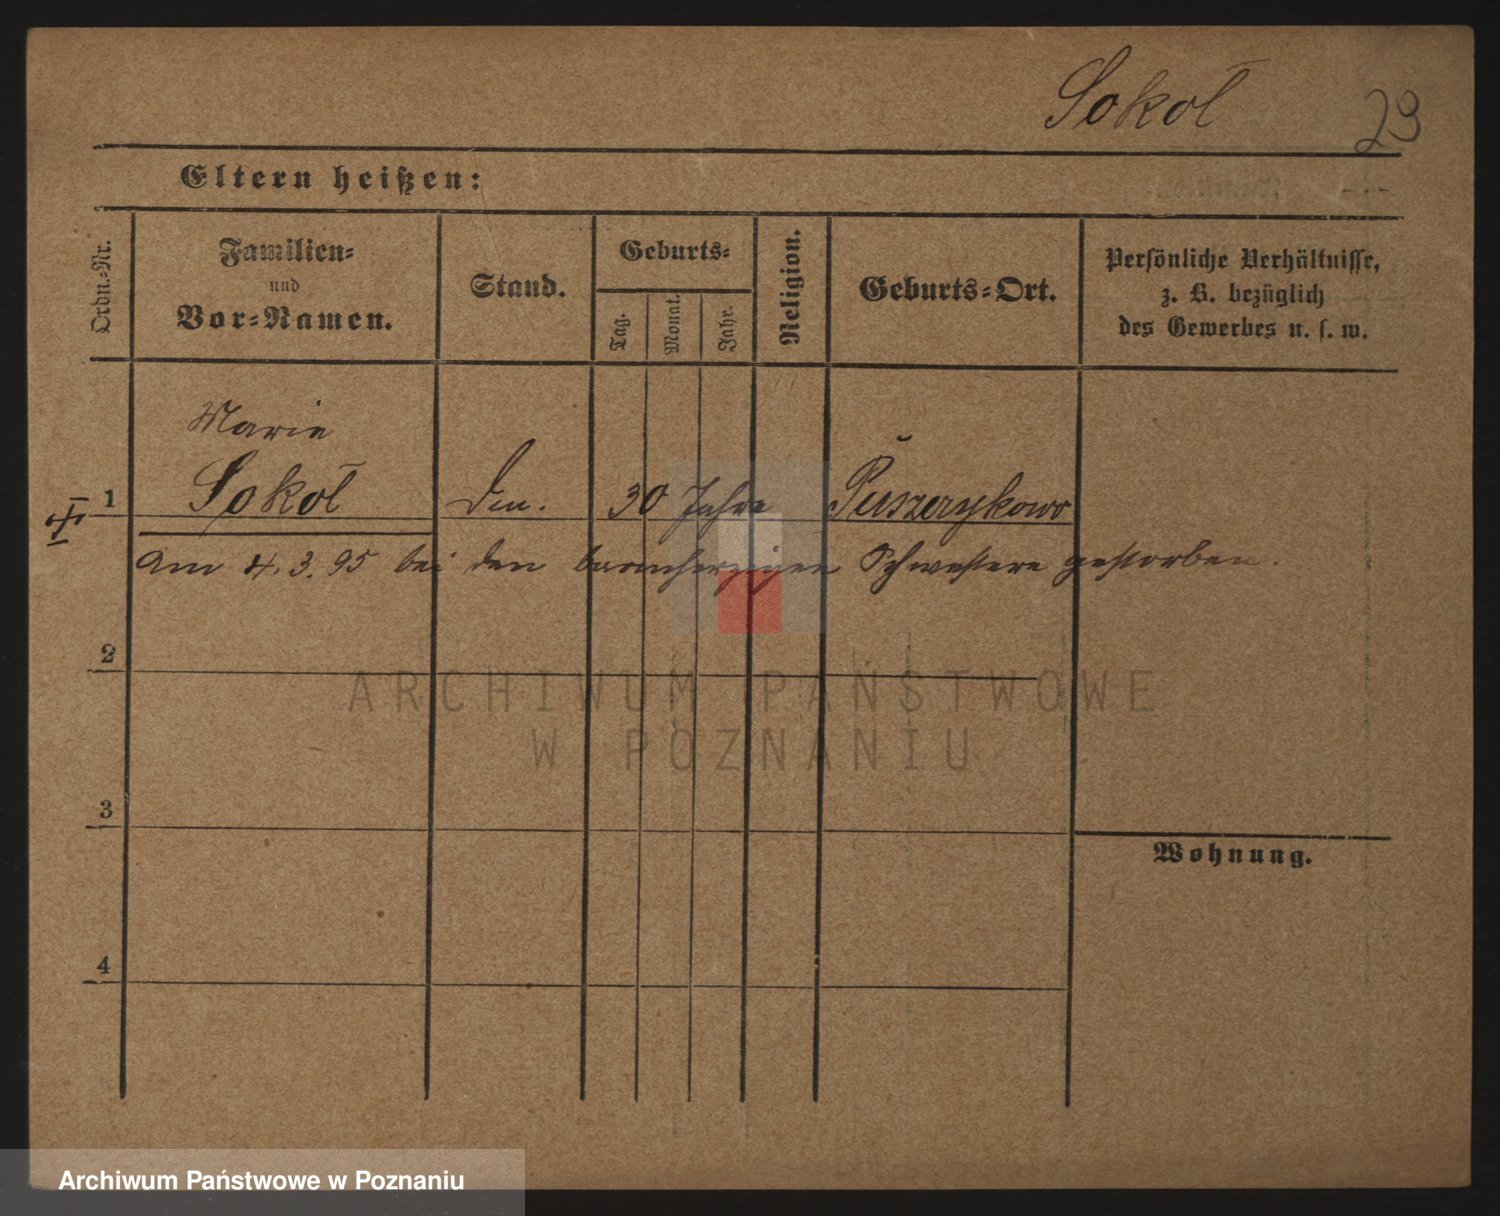 Sokoł 29
Eltern heißen:
Ordn.-Nr.
Familien-
und
Vor-Namen.
Stand.
Geburts-
Tag.
Monat.
Jahr.
Religion.
Geburts-Ort.
Persönliche Verhältnisse,
z. B. bezüglich
des Gewerbes u. s. w.
Marie
1 Sokoł 30 Jahre Puszczykowo
am 4.3.95 bei den barmherzigen Schwestern gestorben.
2
ARCHIWUM PAŃSTWOWE
W POZNANIU
3
Wohnung.
4
Archiwum Państwowe w Poznaniu